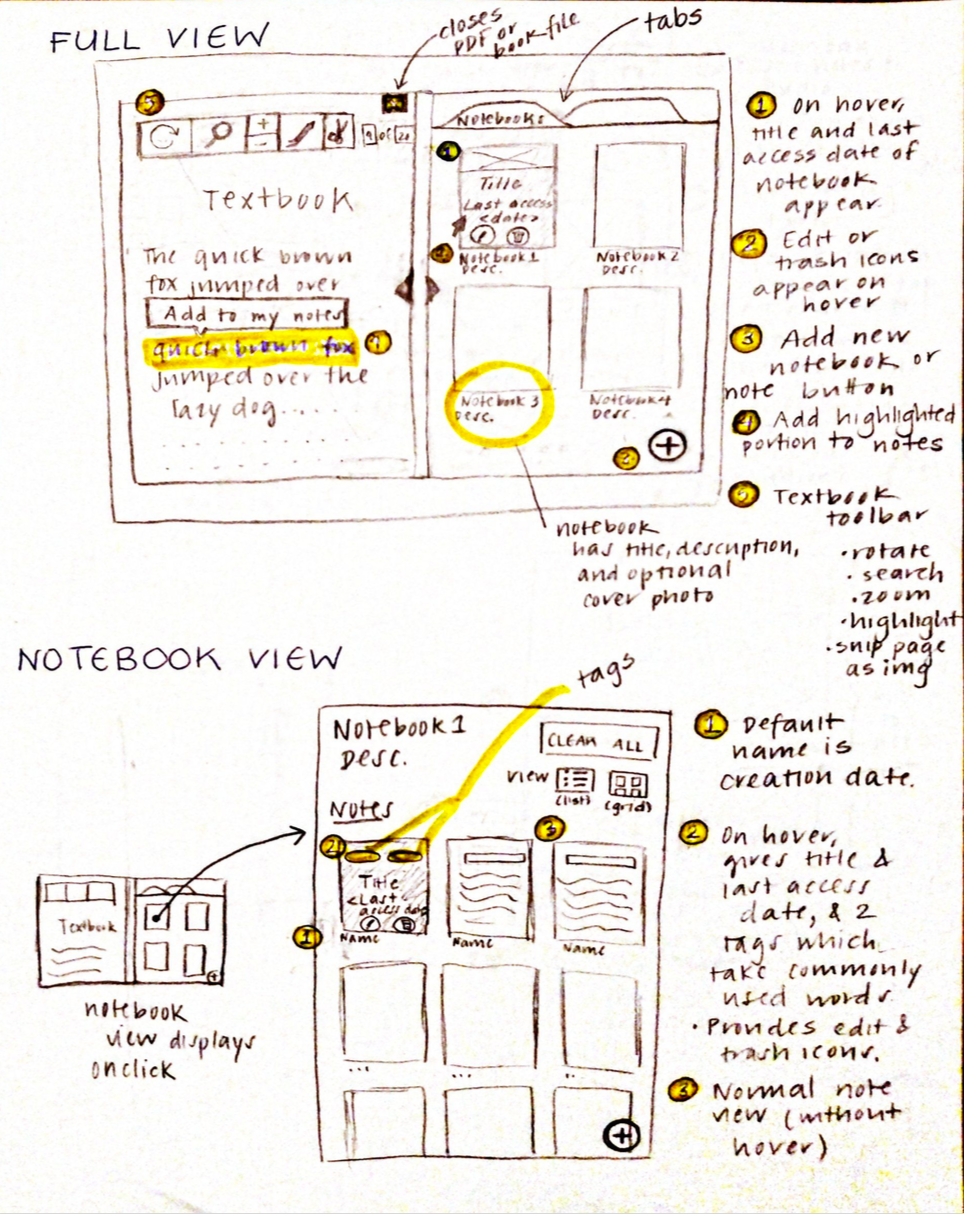 FULL VIEW
closes
PDF or
book file
tabs
5
X
+
-
9 of 20
Textbook
The quick brown
fox jumped over
Add to my notes
quick brown fox
jumped over the
lazy dog.....
4
Notebooks
1
Title
Last access
<date>
2
Notebook 1
Desc.
Notebook 2
Desc.
Notebook 3
Desc.
Notebook 4
Desc.
3
+
notebook
has title, description,
and optional
cover photo
1 On hover,
title and last
access date of
notebook
appear.
2 Edit or
trash icons
appear on
hover
3 Add new
notebook or
note button
4 Add highlighted
portion to notes
5 Textbook
toolbar
• rotate
• search
• zoom
• highlight
• snip page
as img
NOTEBOOK VIEW
tags
Notebook 1
Desc.
CLEAR ALL
VIEW
(list)
(grid)
Notes
2
3
Title
<Last
access date
1
Name
Name
Name
...
...
..
+
Textbook
+
notebook
view displays
onclick
1 Default
name is
creation date.
2 On hover,
gives title &
last access
date, & 2
tags which
take commonly
used words.
• Provides edit &
trash icons.
3 Normal note
view (without
hover)